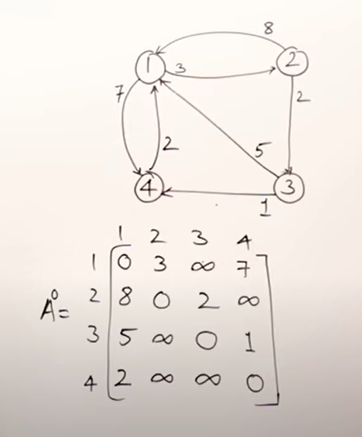 8
1 3 2
7 2
2 5
4 3
1
1 2 3 4
1 0 3 ∞ 7
2 8 0 2 ∞
A⁰=
3 5 ∞ 0 1
4 2 ∞ ∞ 0